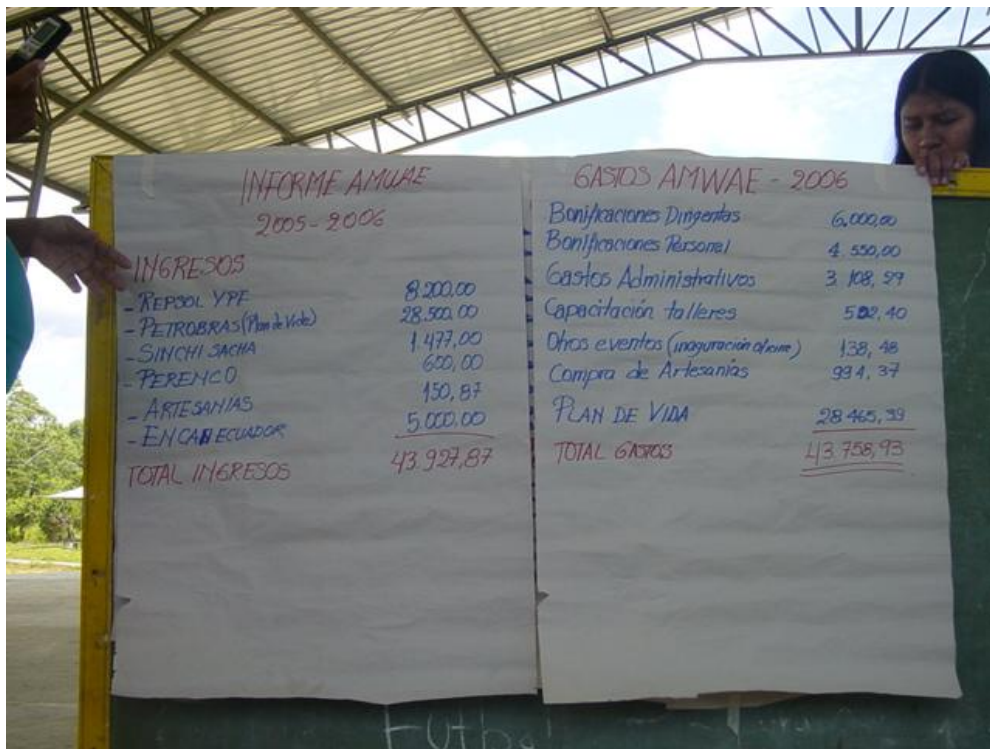 INFORME AMWAE
2005-2006
INGRESOS
- REPSOL YPF 8.200,00
- PETROBRAS (Plan de Vida) 28.500,00
- SINCHI SACHA 1.477,00
- PERENCO 600,00
- ARTESANIAS 150,87
- ENCAN ECUADOR 5.000,00
TOTAL INGRESOS 43.927,87
GASTOS AMWAE - 2006
Bonificaciones Dirigentas 6.000,00
Bonificaciones Personal 4.550,00
Gastos Administrativos 3.108,29
Capacitación talleres 502,40
Otros eventos (inaguración oficina) 138,48
Compra de Artesanías 994,37
PLAN DE VIDA 28.465,39
TOTAL GASTOS 43.758,93